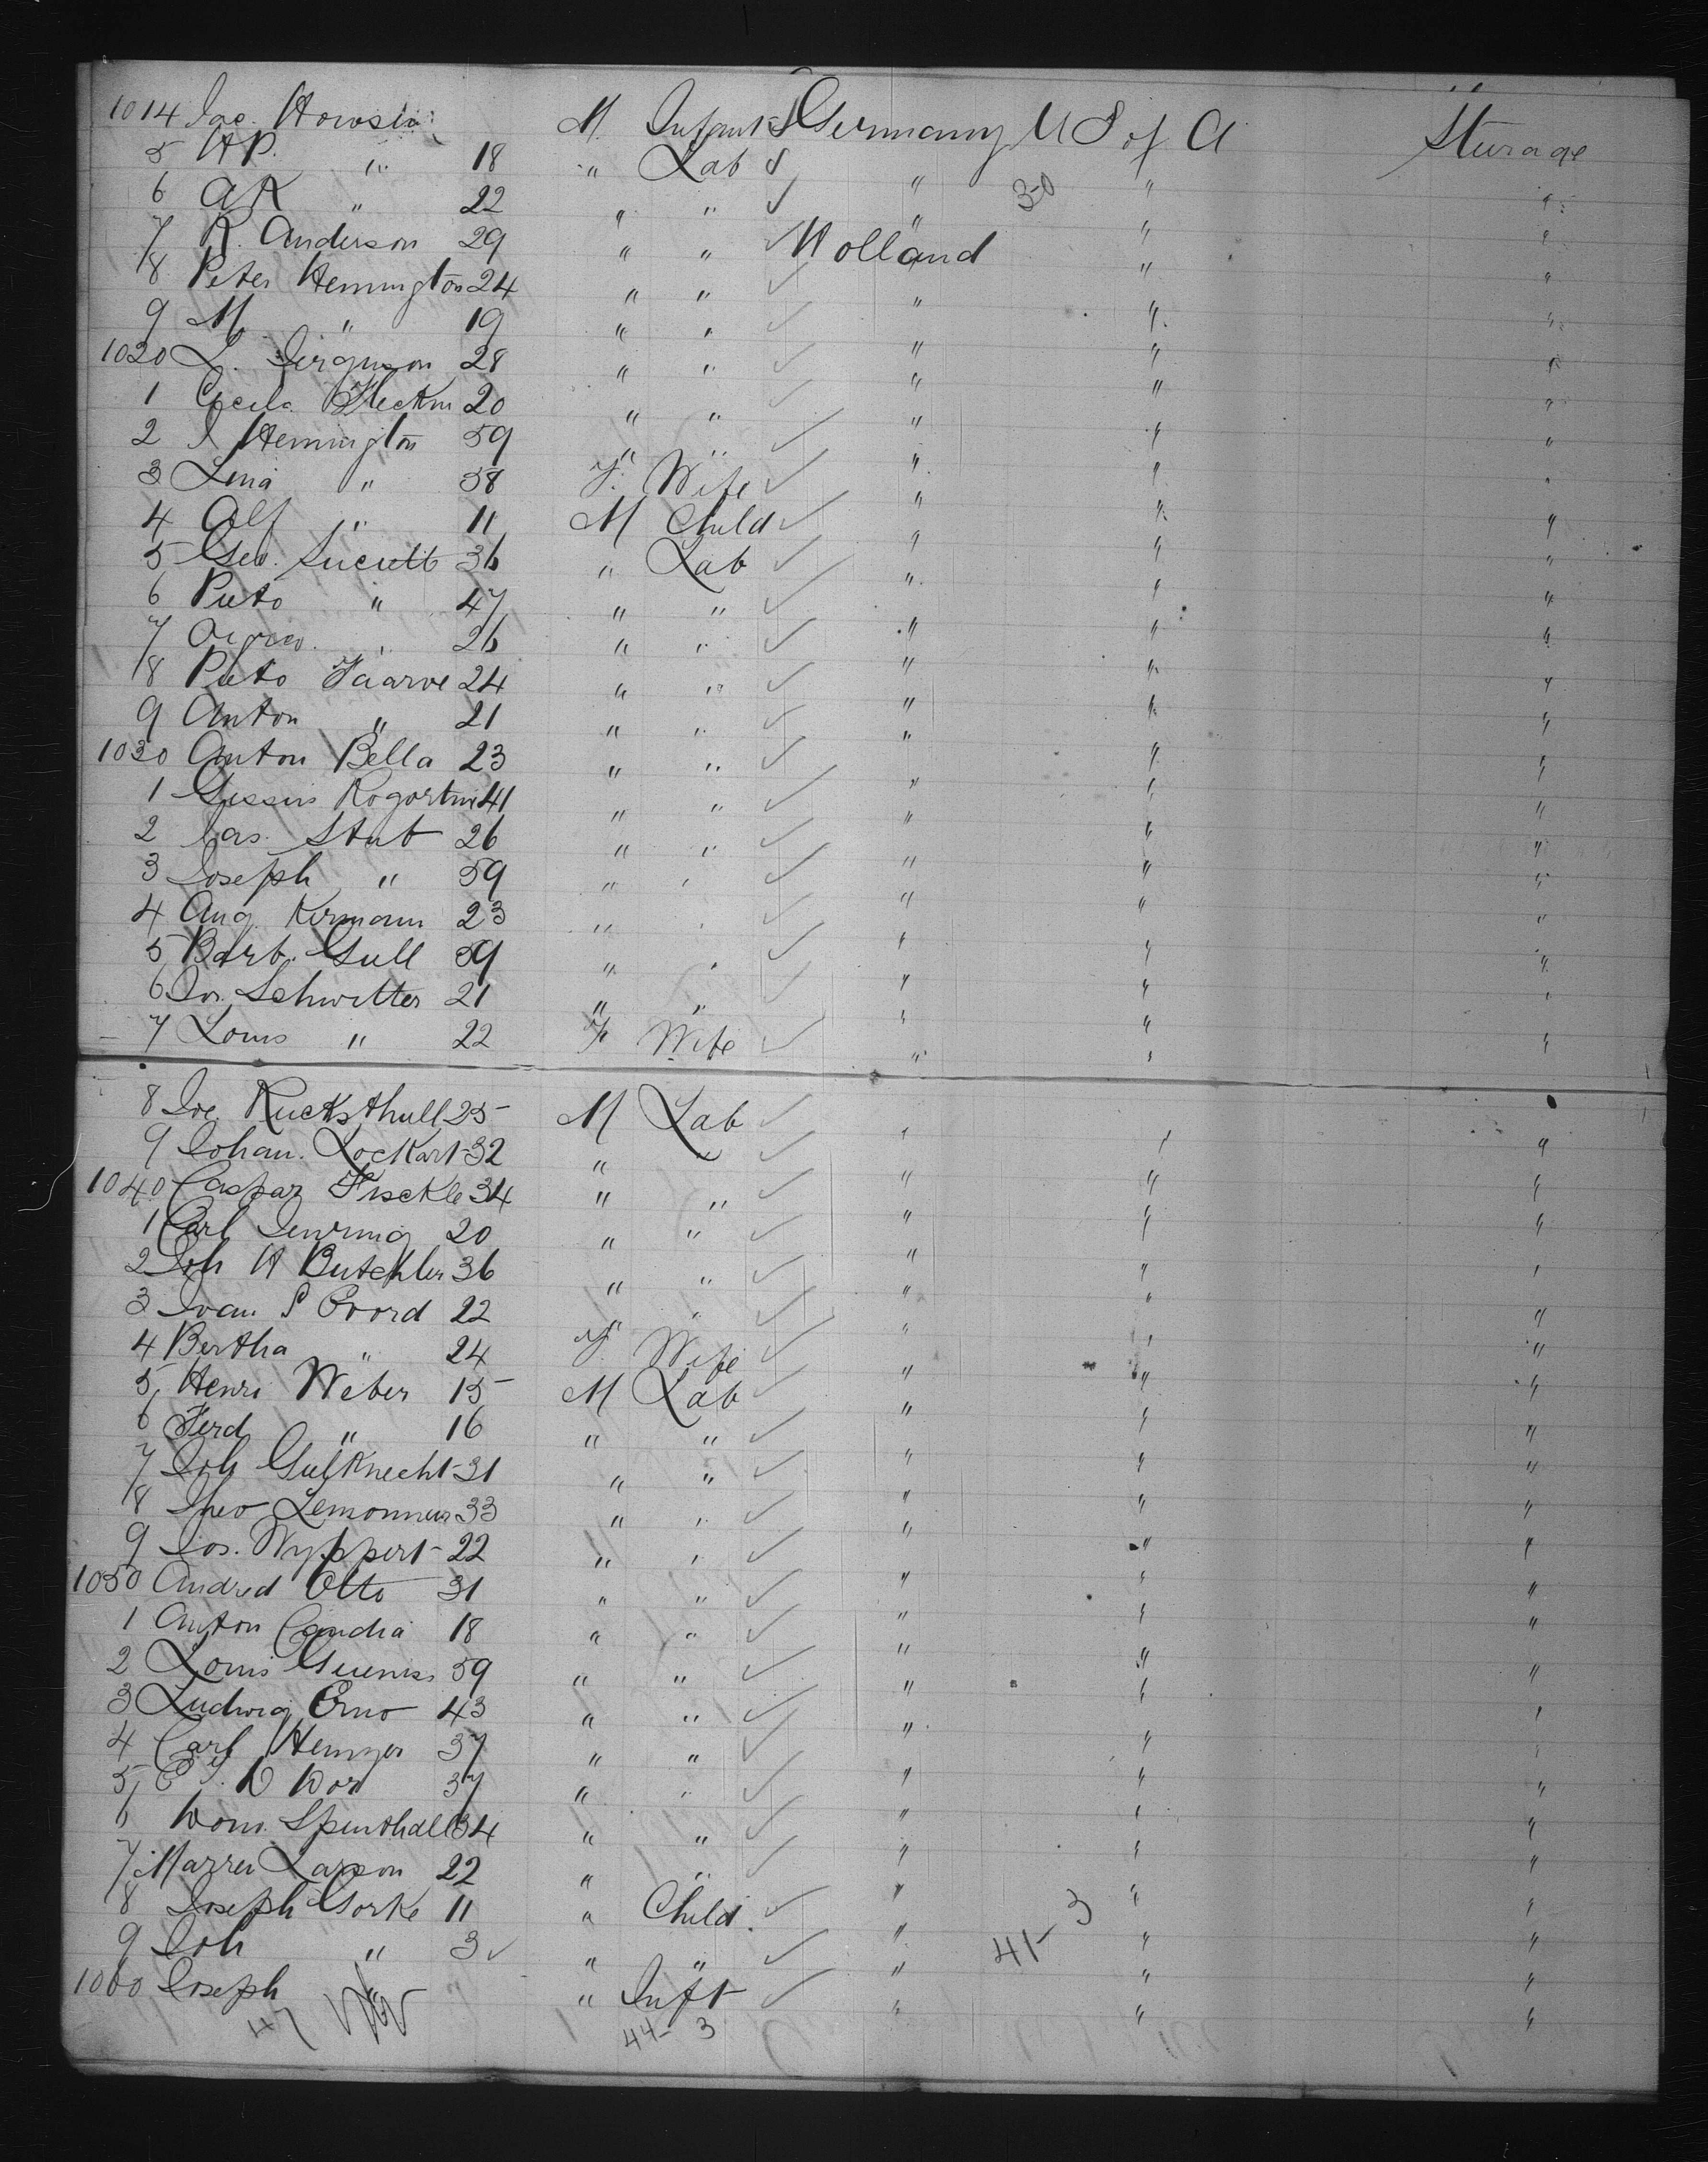 1014 Jac. Howsin M. Infant Germany U S of A Sturage
5 HP. " 18 " Lab " " "
6 AK " 22 " " " 30 " "
7 R. Anderson 29 " " Holland " "
8 Peter Hennington 24 " " " " "
9 M " 19 " " " " "
1020 L. Jerguson 28 " " " " "
1 Heckm 20 " " " " "
2 J Hennington 59 " " " " "
3 Lena " 58 F. Wife " " "
4 Alf " 11 M Child " " "
5 Geo. Sucutt 36 " Lab " " "
6 Pieto " 47 " " " " "
7 " 26 " " " " "
8 Pieto Jaarve 24 " " " " "
9 Anton " 21 " " " " "
1030 Anton Bella 23 " " " " "
1 41 " " " " "
2 Jas. Stub 26 " " " " "
3 Joseph " 59 " " " " "
4 Aug. Kermann 23 " " " " "
5 Barb. Gull 59 " " " " "
6 Jos. Schwitter 21 " " " " "
7 Louis " 22 F Wife " " "
8 Joe. Rucksthull 25 M Lab " " "
9 Johan. Lockart 32 " " " " "
1040 Caspar Fisckle 34 " " " " "
1 Carl 20 " " " " "
2 Joh H Butchler 36 " " " " "
3 Ivan P Coord 22 " " " " "
4 Bertha " 24 F. Wife " " "
5 Henri Weber 15 M Lab " " "
6 Ferd " 16 " " " " "
7 Joh Gulknecht 31 " " " " "
8 Theo Lemonnier 33 " " " " "
9 Jos. Wyppert 22 " " " " "
1050 Andred Otto 31 " " " " "
1 Anton Candia 18 " " " " "
2 Louis 59 " " " " "
3 Ludwig Erno 43 " " " " "
4 Carl Henzer 37 " " " " "
5 37 " " " " "
6 Dom. Spinthall 34 " " " " "
7 Larson 22 " " " " "
8 Joseph Gorke 11 " Child " " "
9 Joh " 3 " " " 41-3 " "
1060 Joseph " " Inft " " "
47 44-3